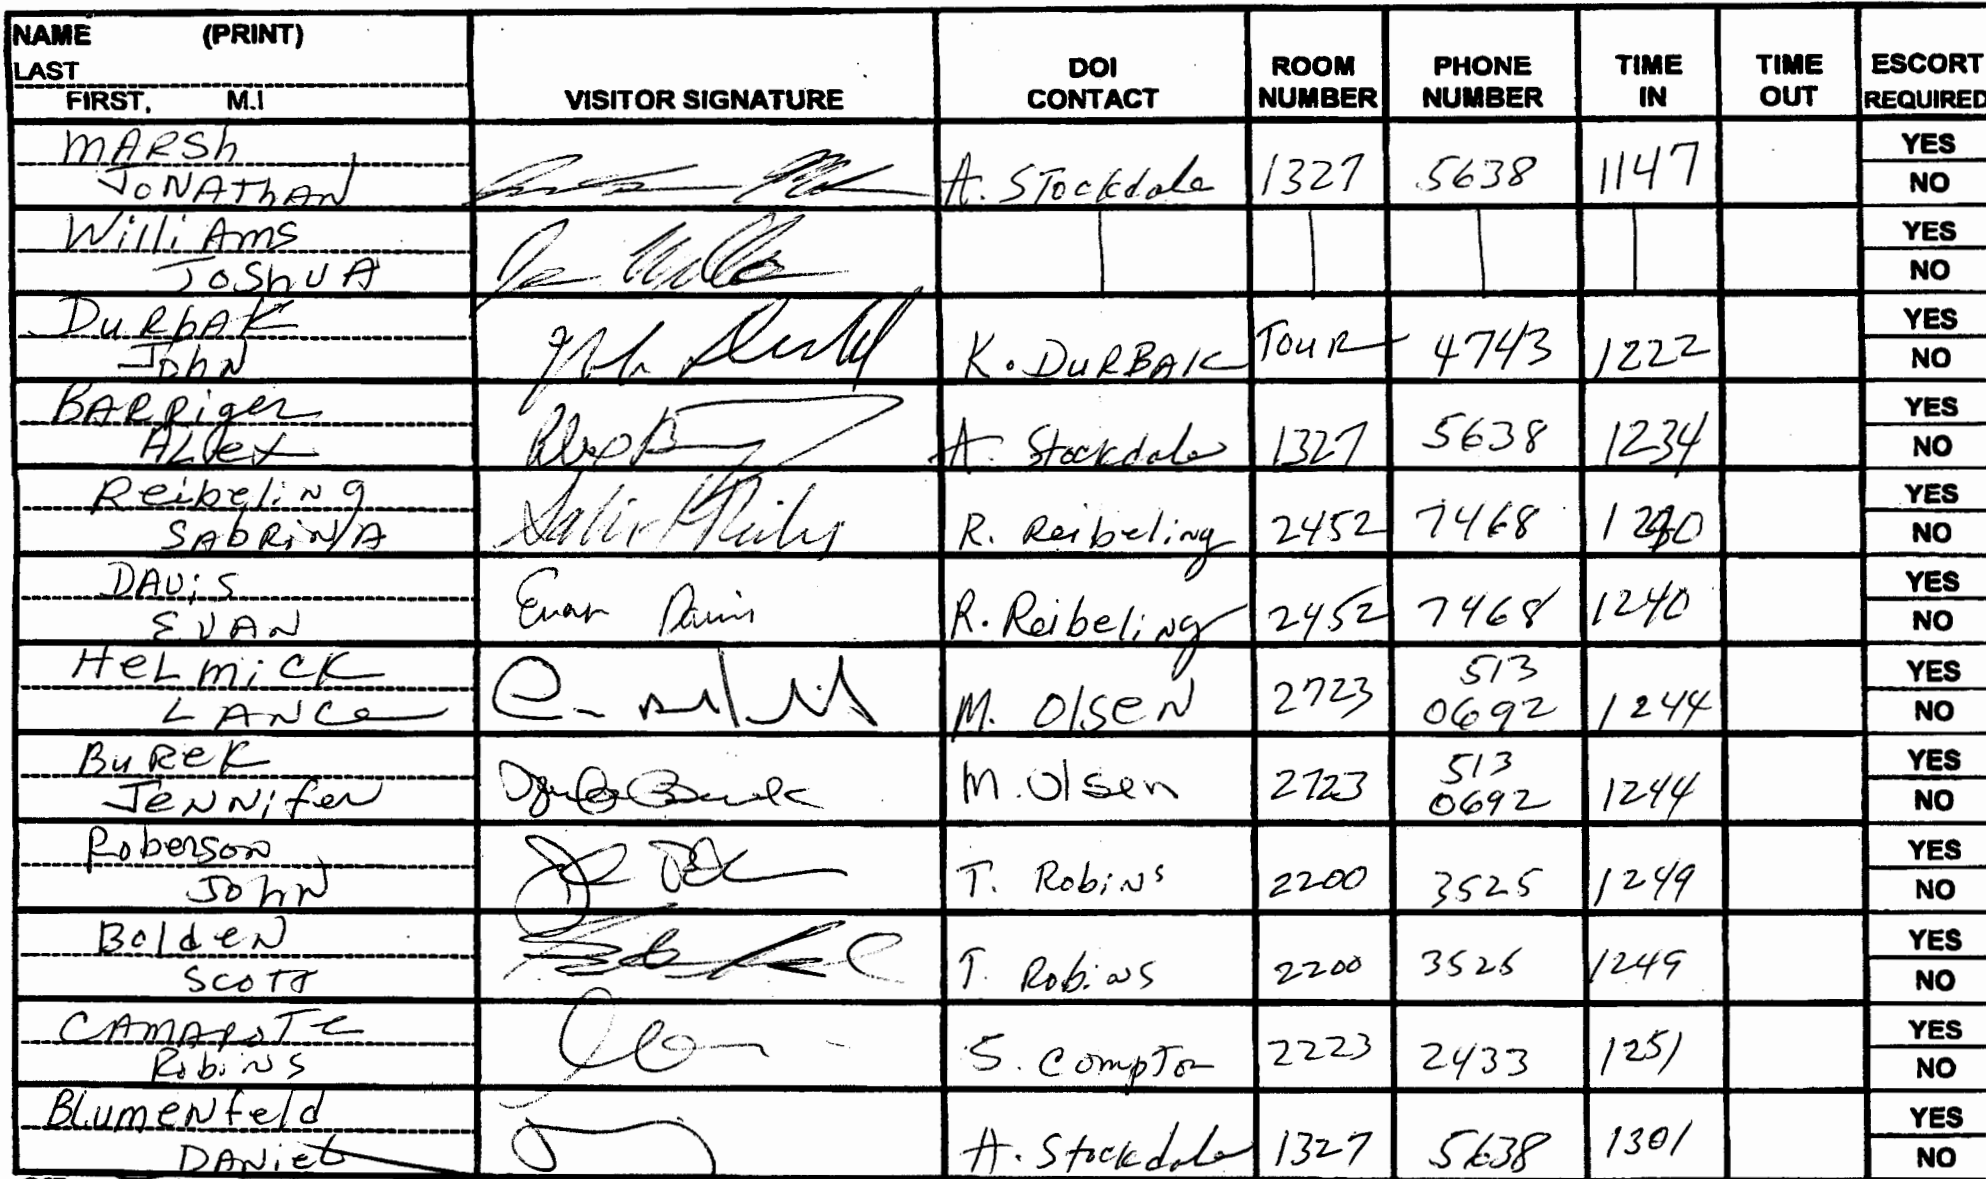 NAME (PRINT)
LAST
FIRST, M.I
VISITOR SIGNATURE
DOI CONTACT
ROOM NUMBER
PHONE NUMBER
TIME IN
TIME OUT
ESCORT REQUIRED
MARSh
JONAThAN
A. STockdale 1327 5638 1147 YES
NO
WilliAms
JoShUA
YES
NO
DuRbAK
JohN
K. DURBAK TOUR 4743 1222 YES
NO
BARRiger
ALLex
A. Stockdale 1327 5638 1234 YES
NO
Reibeling
SAbRiNA
R. Reibeling 2452 7468 YES
NO
DAViS
EVAN
Evan Davis
R. Reibeling 2452 7468 1240 YES
NO
HeLmiCK
LANCe
M. OlseN 2723 513 0692 1244 YES
NO
BuReK
JeNNifer
M. Olsen 2723 513 0692 1244 YES
NO
Roberson
JohN
T. RobiNs 2200 3525 1249 YES
NO
BoldeN
SCOTT
T. RobiNS 2200 3525 1249 YES
NO
RobiNS
S. CompTon 2223 2433 1251 YES
NO
BLumeNfeld
DANieL
A. Stockdale 1327 5638 1301 YES
NO